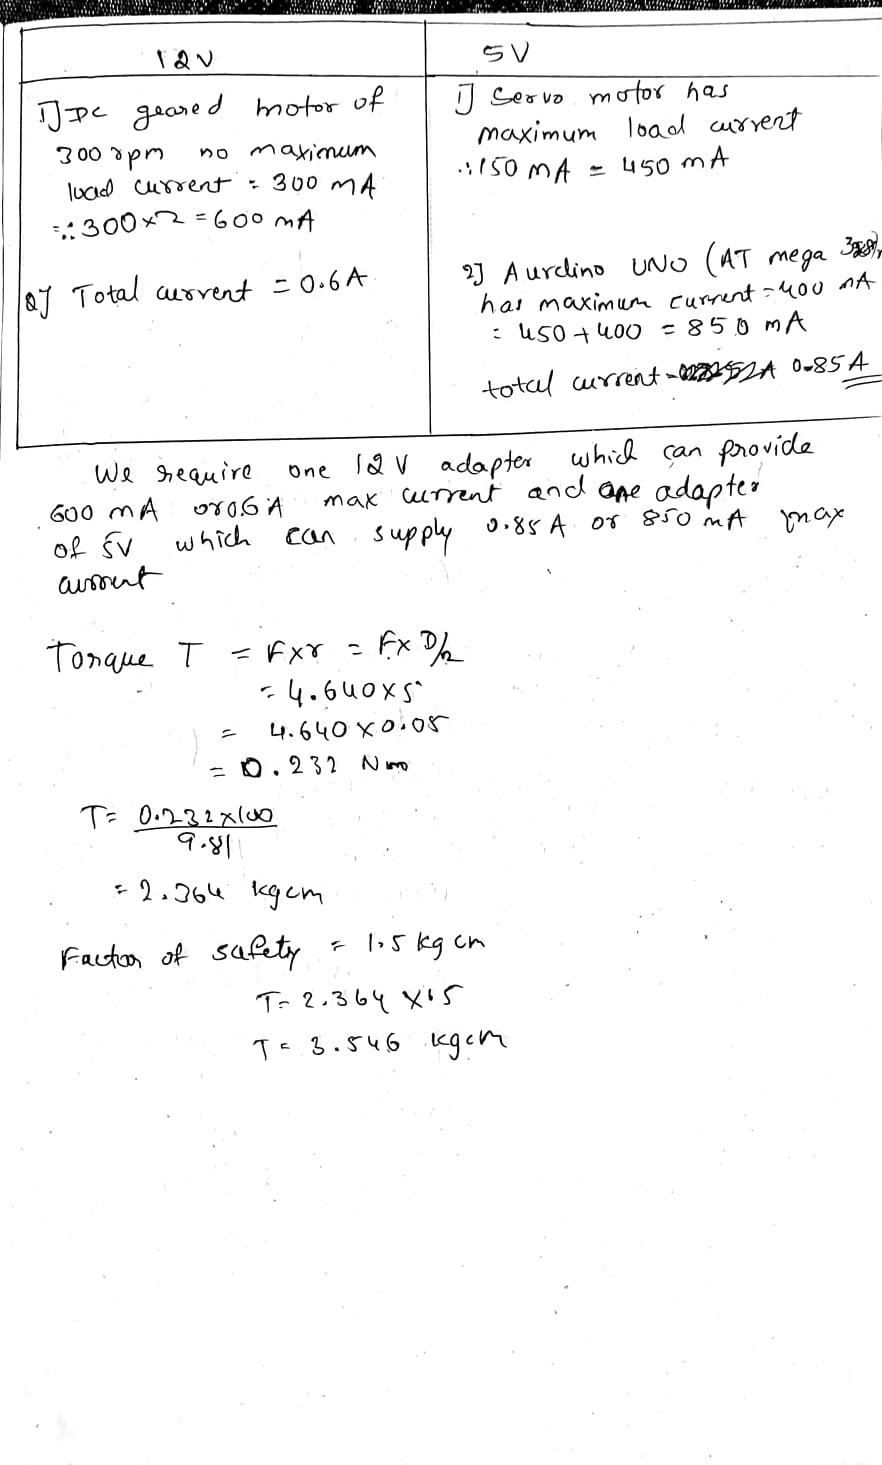 12V
1] DC geared motor of
300 rpm no maximum
load current = 300 mA
=∴ 300×2 = 600 mA
2] Total current = 0.6A
5V
1] Servo motor has
maximum load current
∴ 150 mA = 450 mA
2] Aurdino UNO (AT mega
has maximum current = 400 mA
= 450 + 400 = 850 mA
total current - 0.85 A
We require one 12 V adapter which can provide
600 mA or 0.6 A max current and one adapter
of 5V which can supply 0.85 A or 850 mA max
current
Torque T = F×r = F× D/2
= 4.640×5
= 4.640 × 0.05
= 0.232 Nm
T= 0.232×100
9.81
= 2.364 kgcm
Factor of safety = 1.5 kg cm
T= 2.364 ×1.5
T = 3.546 kgcm